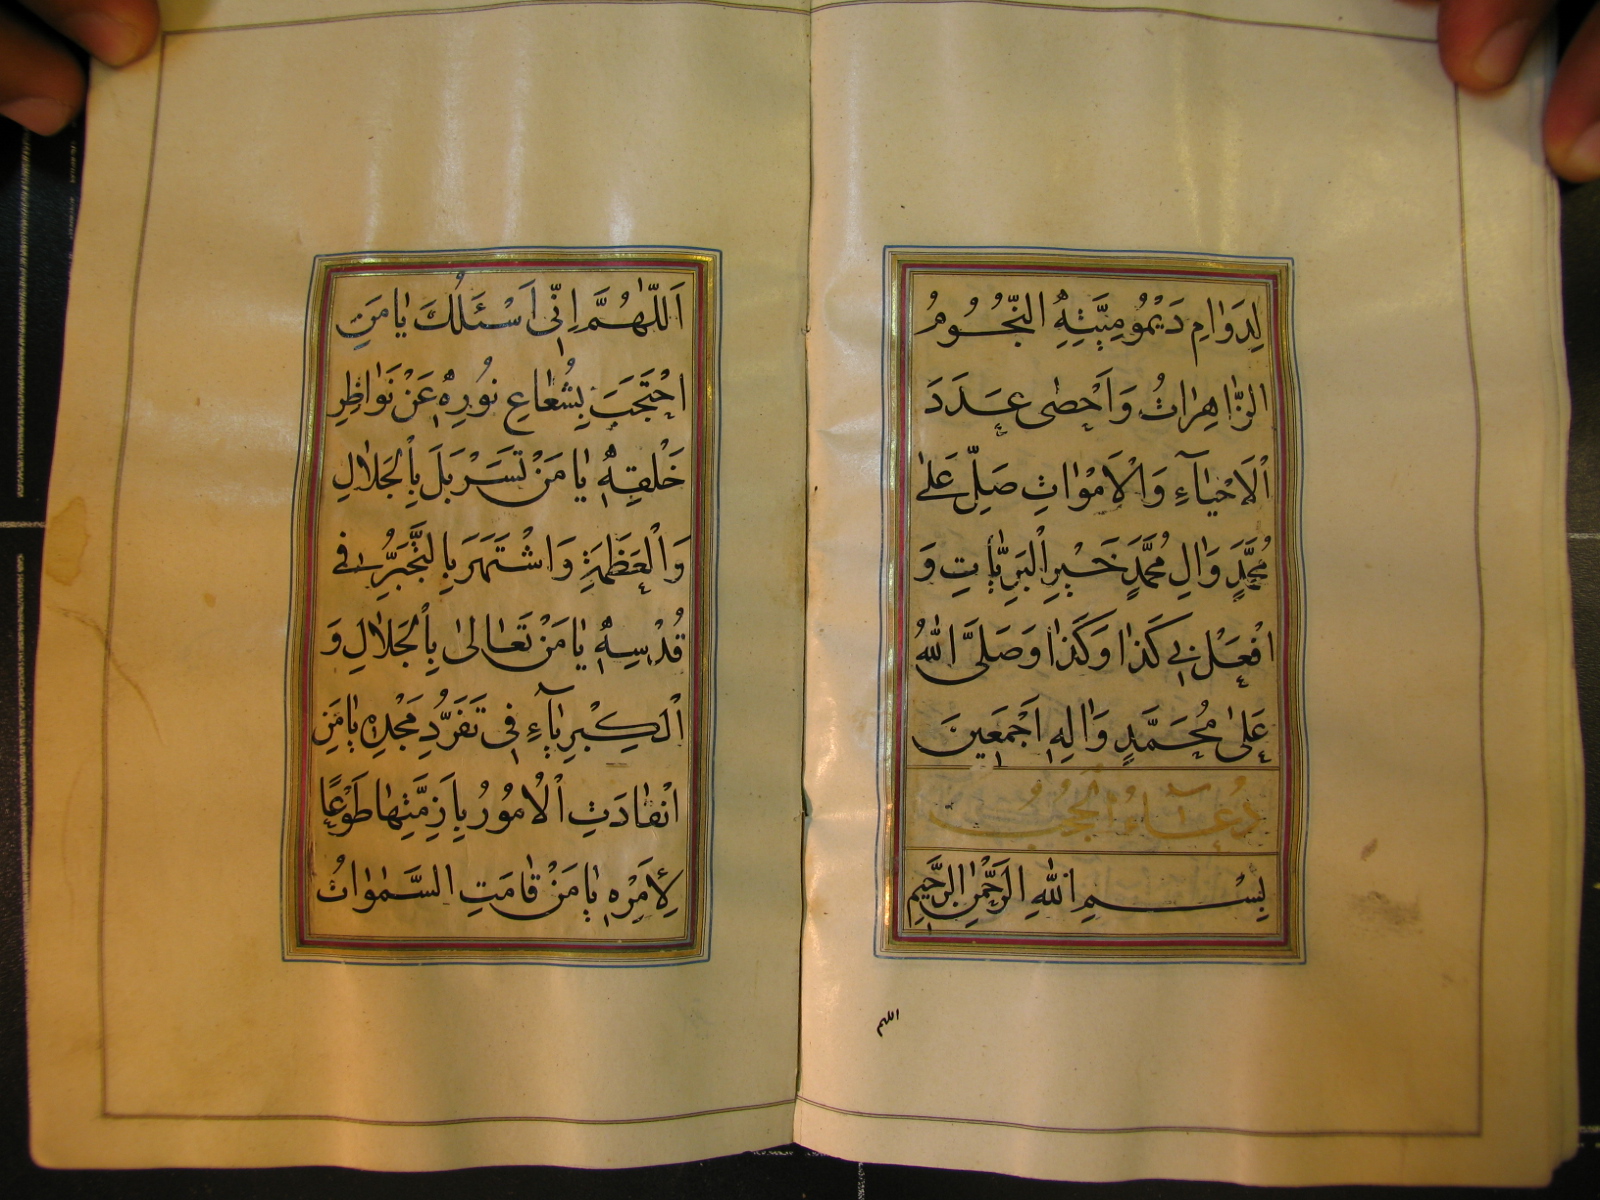 لِدَوٰامِ دَيْمُومِيَّتِهِ النُّجُومُ
الزّٰاهِرٰاتُ وَاَحْصٰى عَدَدَ
الْاَحْيٰآءِ وَالْاَمْوٰاتِ صَلِّ عَلٰى
مُحَمَّدٍ وَاٰلِ مُحَمَّدٍ خَيْرِ الْبَرِيّٰاتِ وَ
افْعَلْ بِى كَذٰا وَكَذٰا وَصَلَّى اللّٰهُ
عَلٰى مُحَمَّدٍ وَاٰلِهِ اَجْمَعِينَ
دُعٰآءُ الْحُجُبْ
بِسْمِ اللّٰهِ الرَّحْمٰنِ الرَّحِيمِ
اللهم
اَللّٰهُمَّ اِنِّى اَسْئَلُكَ يٰا مَنِ
احْتَجَبَ بِشُعٰاعِ نُورِهِ عَنْ نَوٰاظِرِ
خَلْقِهِ يٰا مَنْ تَسَرْبَلَ بِالْجَلٰالِ
وَالْعَظَمَةِ وَاشْتَهَرَ بِالتَّجَبُّرِ فِى
قُدْسِهِ يٰا مَنْ تَعٰالىٰ بِالْجَلٰالِ وَ
الْكِبْرِيٰآءِ فِى تَفَرُّدِ مَجْدِهِ يٰا مَنِ
انْقٰادَتِ الْاُمُورُ بِاَزِمَّتِهٰا طَوْعًا
لِاَمْرِهِ يٰا مَنْ قٰامَتِ السَّمٰوٰاتُ